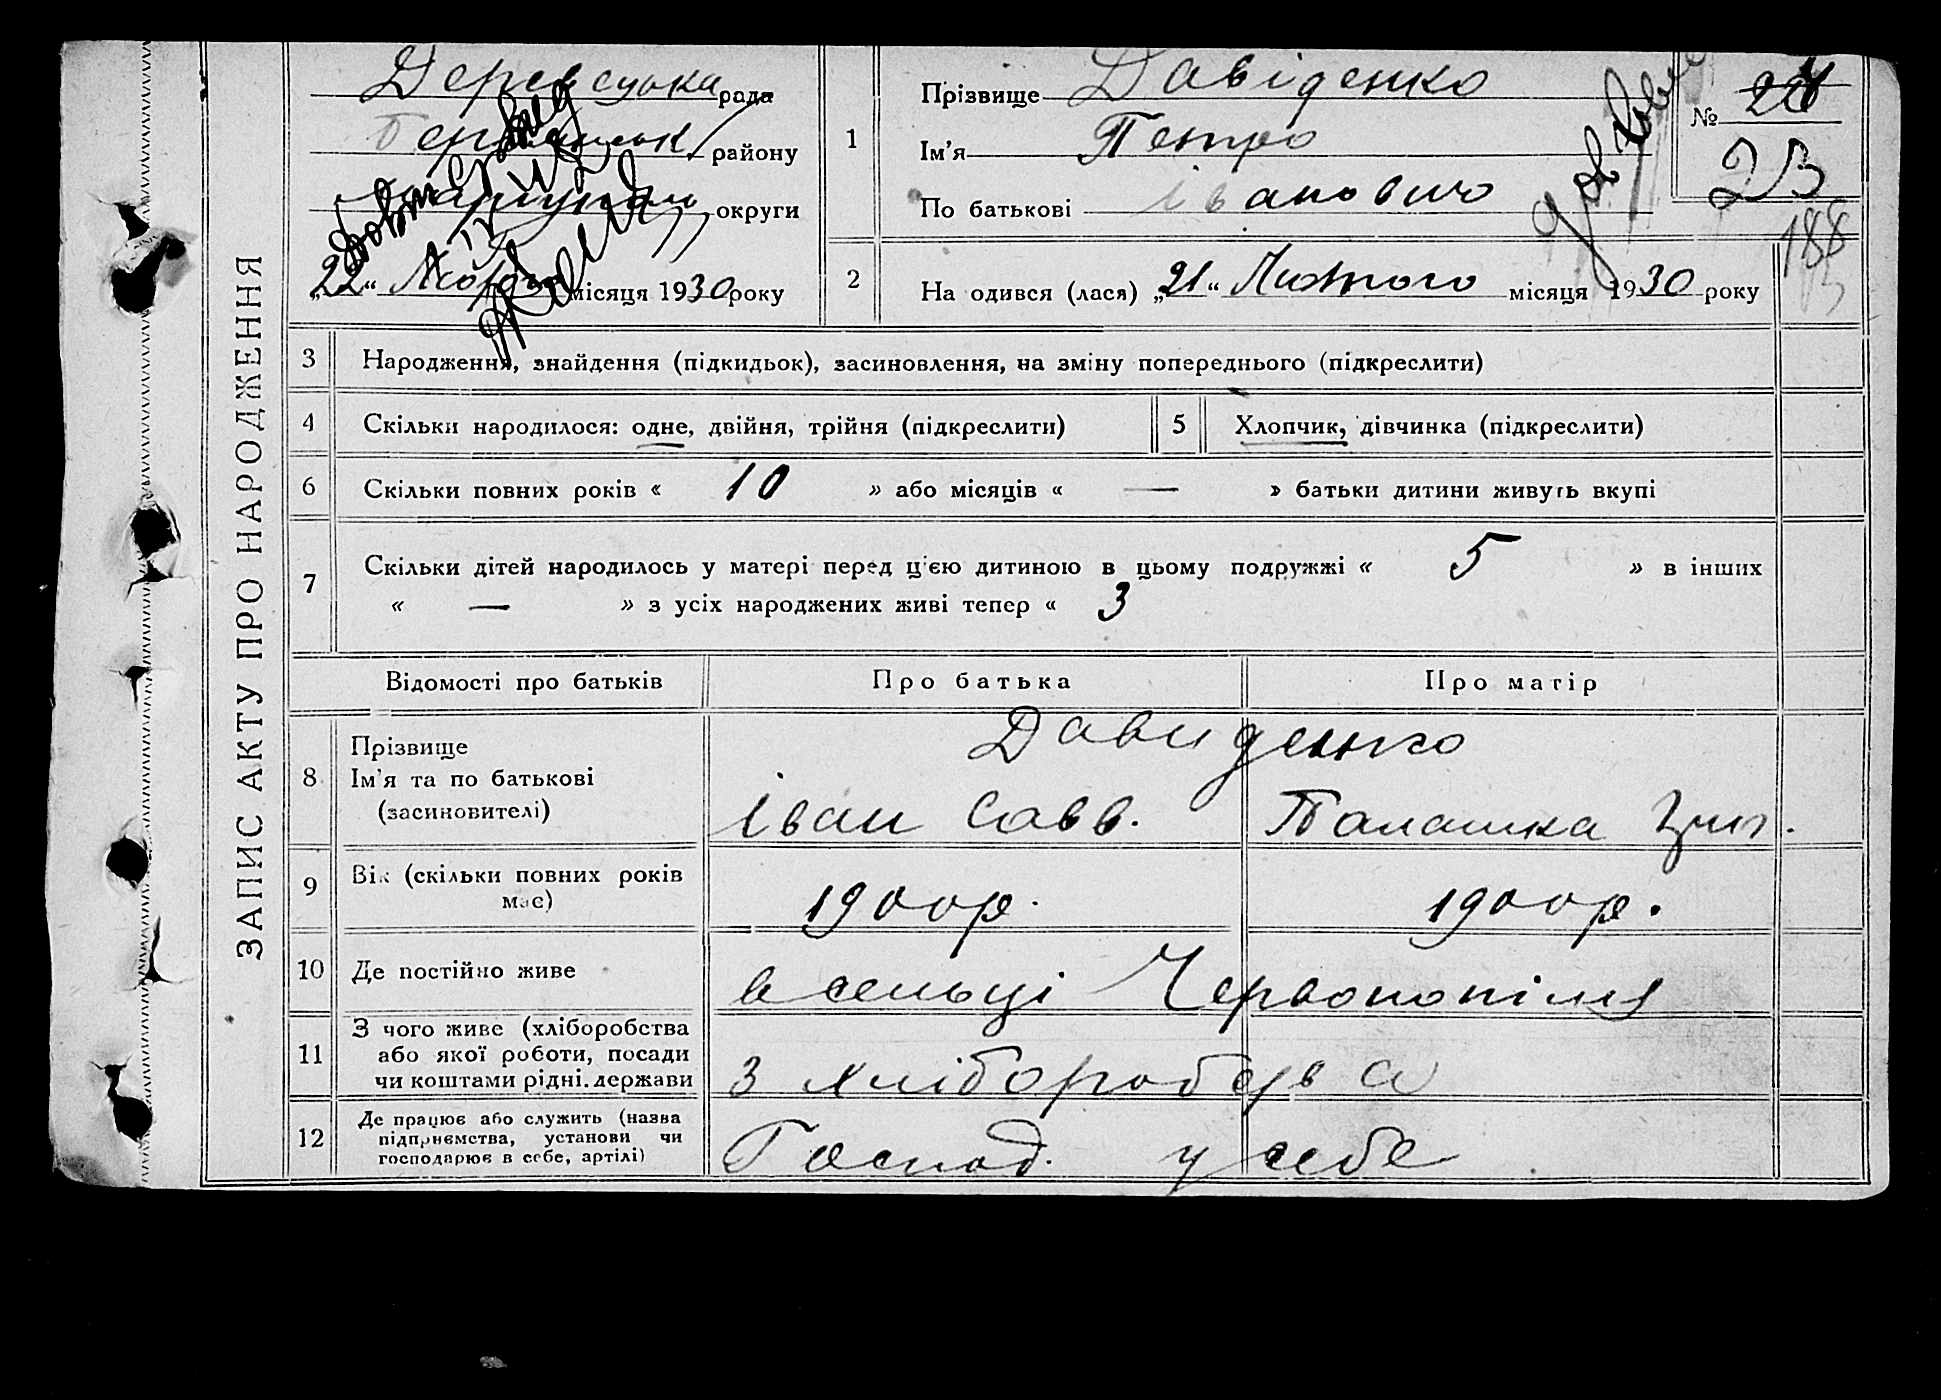 ЗАПИС АКТУ ПРО НАРОДЖЕННЯ
рада
району
округи
„22“ місяця 1930 року
1 Прізвище Давіденко
Ім'я Петро
По батькові Іванович
№ 23
188
2 На одився (лася) „21“ Лютого місяця 1930 року
3 Народження, знайдення (підкидьок), засиновлення, на зміну попереднього (підкреслити)
4 Скільки народилося: одне, двійня, трійня (підкреслити) 5 Хлопчик, дівчинка (підкреслити)
6 Скільки повних років « 10 » або місяців « — » батьки дитини живуть вкупі
7 Скільки дітей народилось у матері перед ц'єю дитиною в цьому подружжі « 5 » в інших
« — » з усіх народжених живі тепер « 3
Відомості про батьків Про батька Про матір
8 Прізвище Давиденко
Ім'я та по батькові
(засиновителі) Іван Савв. Палашка Григ.
9 Вік (скільки повних років
має) 1900р. 1900р.
10 Де постійно живе в сельці Червонопілля
11 З чого живе (хліборобства
або якої роботи, посади
чи коштами рідні. держави з хліборобства
12 Де працює або служить (назва
підприємства, установи чи
господарює в себе, артілі) Господ. у себе